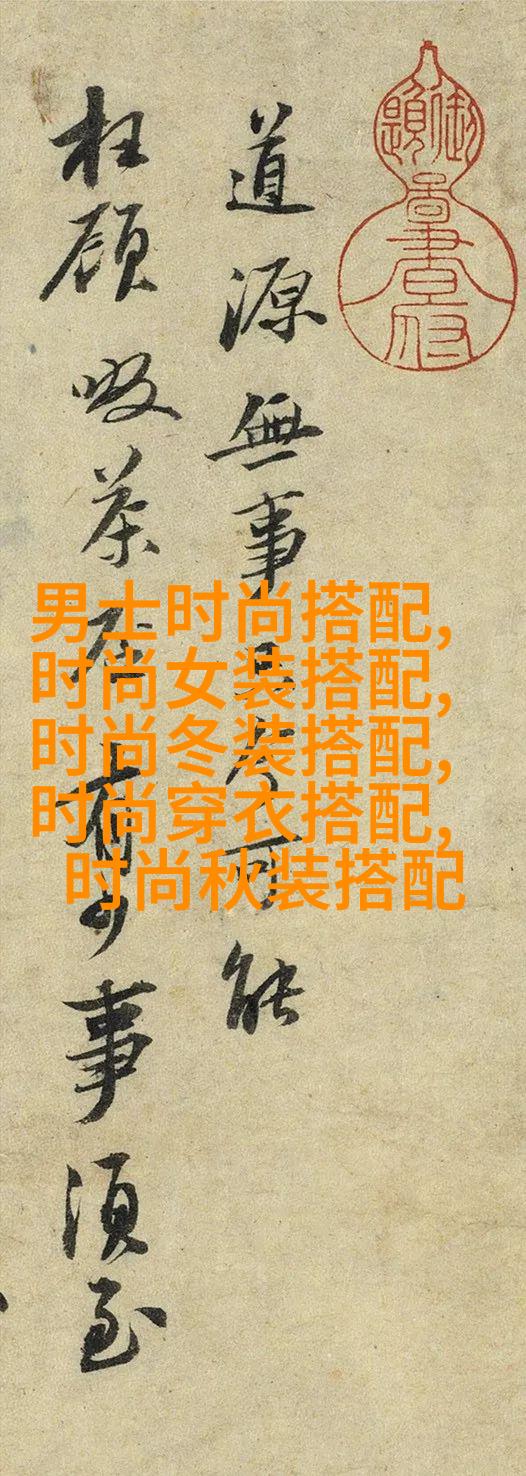 道源無事只今可能
枉顧啜茶否有少事須至
男士时尚搭配,
时尚女装搭配,
时尚冬装搭配,
时尚穿衣搭配,
时尚秋装搭配